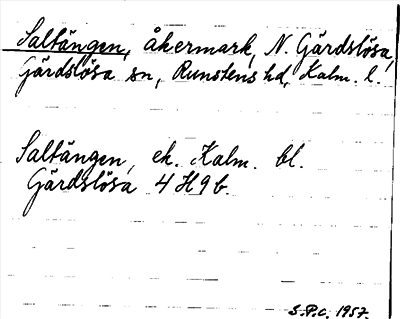 Saltängen, åkermark, N. Gärdslösa,
Gärdslösa sn, Runstens hd, Kalm. l.
Saltängen, ek. Kalm. bl.
Gärdslösa 4 H 9 b.
S.P.C. 1957.